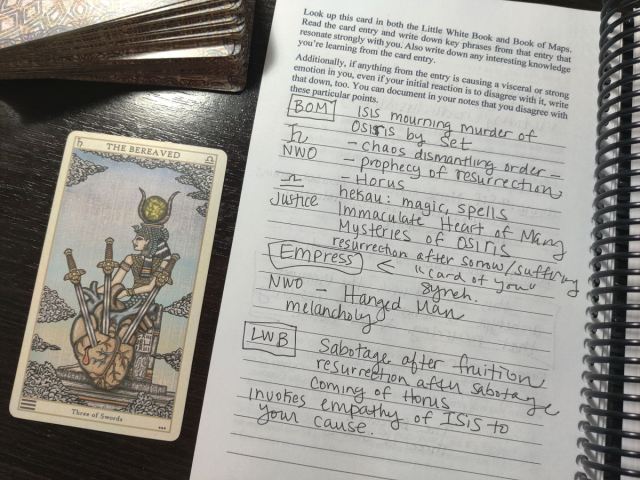 ♄ THE BEREAVED ♎
Three of Swords
Look up this card in both the Little White Book and Book of Maps.
Read the card entry and write down key phrases from that entry that
resonate strongly with you. Also write down any interesting knowledge
you're learning from the card entry.
Additionally, if anything from the entry is causing a visceral or strong
emotion in you, even if your initial reaction is to disagree with it, write
that down, too. You can document in your notes that you disagree with
these particular points.
BOM Isis mourning murder of
Osiris by Set
♄ - chaos dismantling order -
NWO - prophecy of resurrection
♎ - Horus
Justice hekau: magic, spells
Immaculate Heart of Mary
Mysteries of Osiris
resurrection after sorrow/suffering
Empress < "card of you"
NWO - Hanged Man
melancholy
LWB Sabotage after fruition
resurrection after sabotage
coming of Horus
invokes empathy of Isis to
your cause.